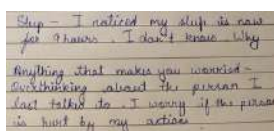 Sleep - I noticed my sleep is now
for 9 hours. I don't know why
Anything that makes you worried -
Overthinking about the person I
last talked to. I worry if the person
is hurt by my actions